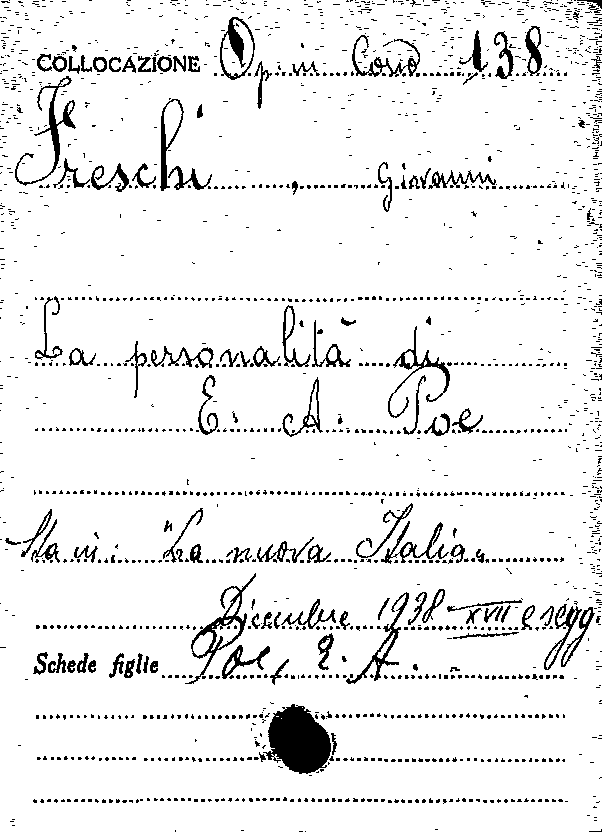 COLLOCAZIONE Op. in Cons 138
Freschi, Giovanni
La personalità di
E. A. Poe
Sta in: "La nuova Italia"
Dicembre 1938 - XVII e segg.
Schede figlie Poe, E. A. -